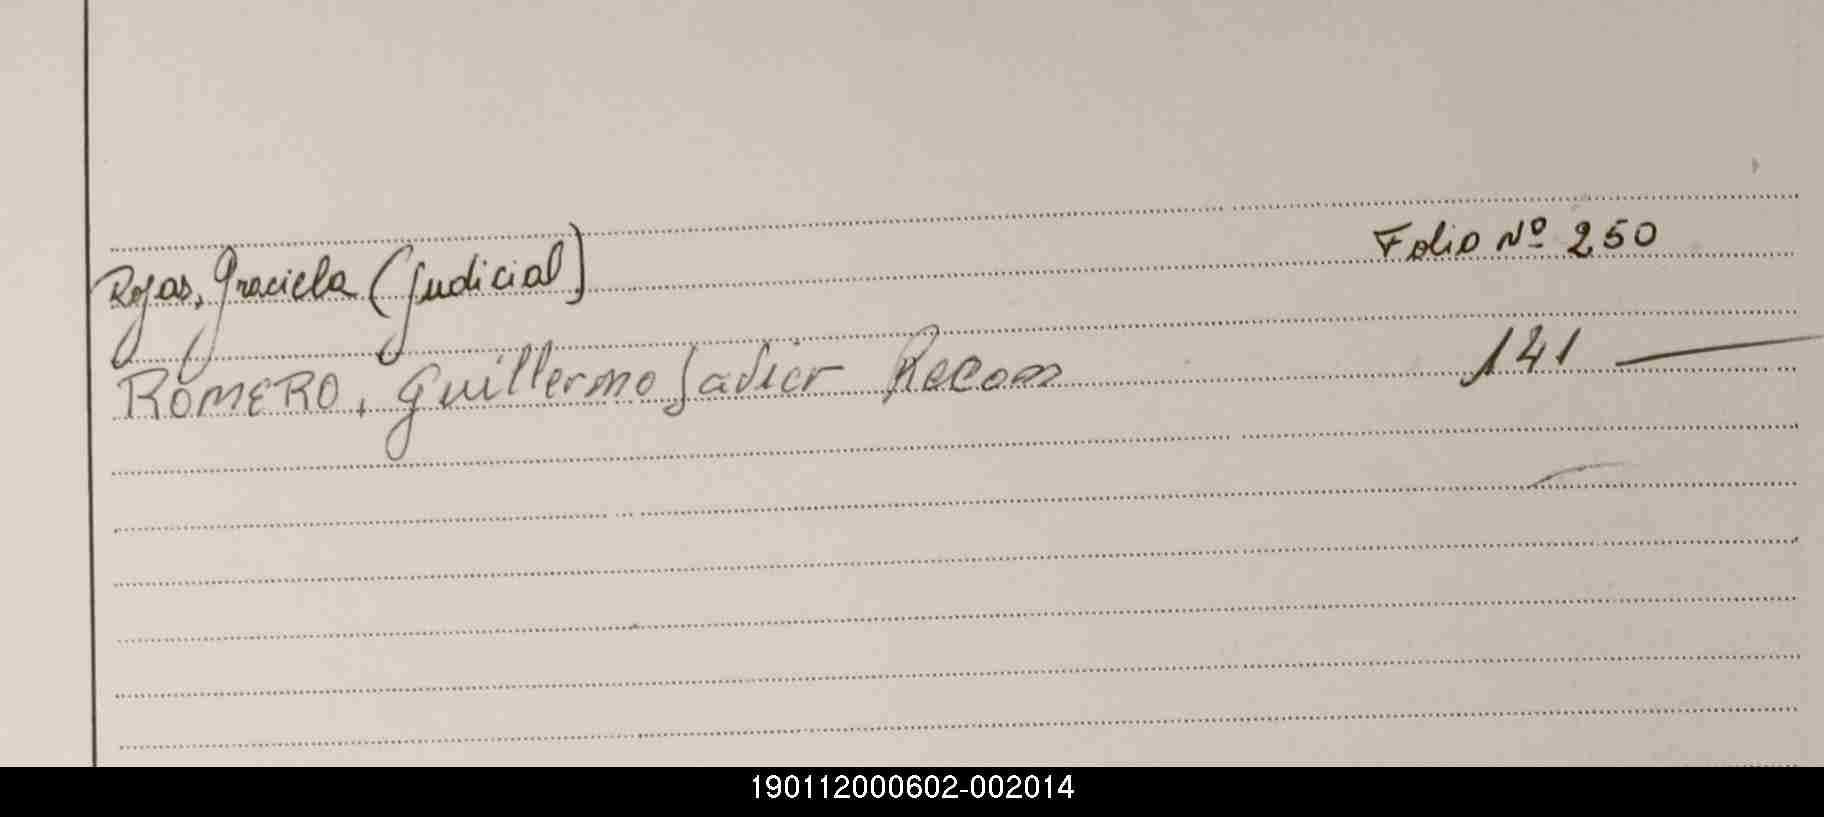 Rojas, Graciela (Judicial) Folio Nº 250
ROMERO, Guillermo Javier Recon 141
190112000602-002014